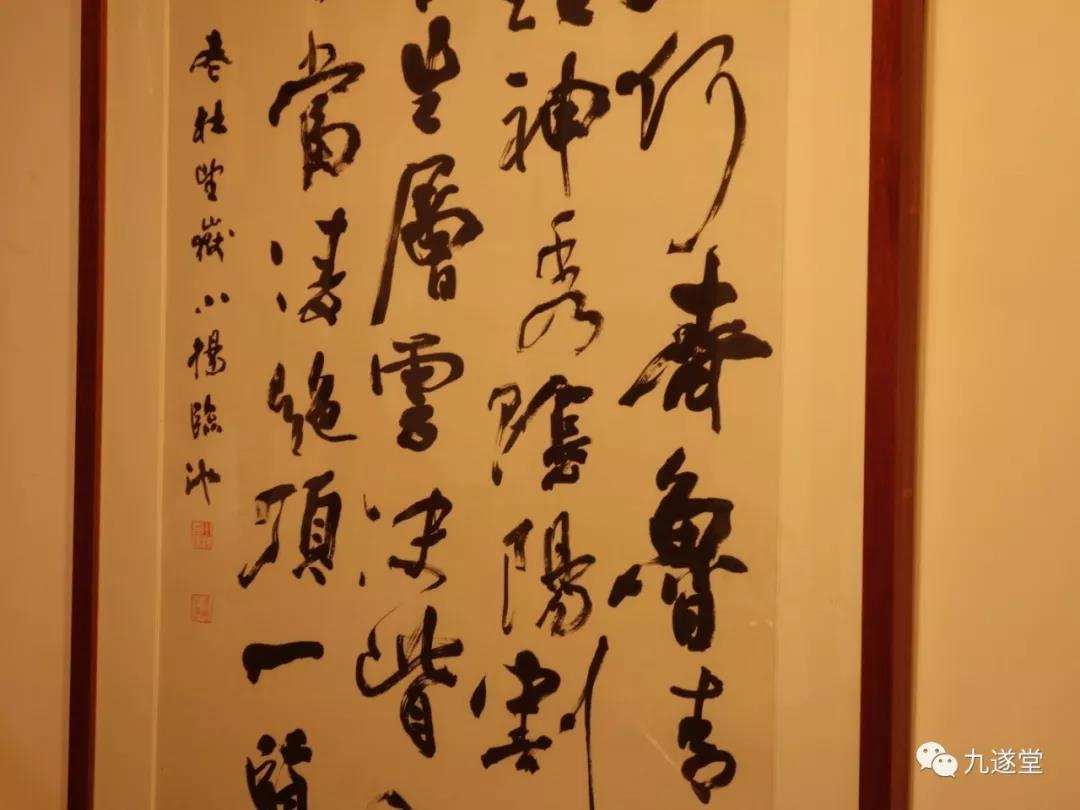 何齊魯青
神秀陰陽割
生層雲決眥
當凌絶頂一覽
老杜望嶽小楊臨池
九遂堂